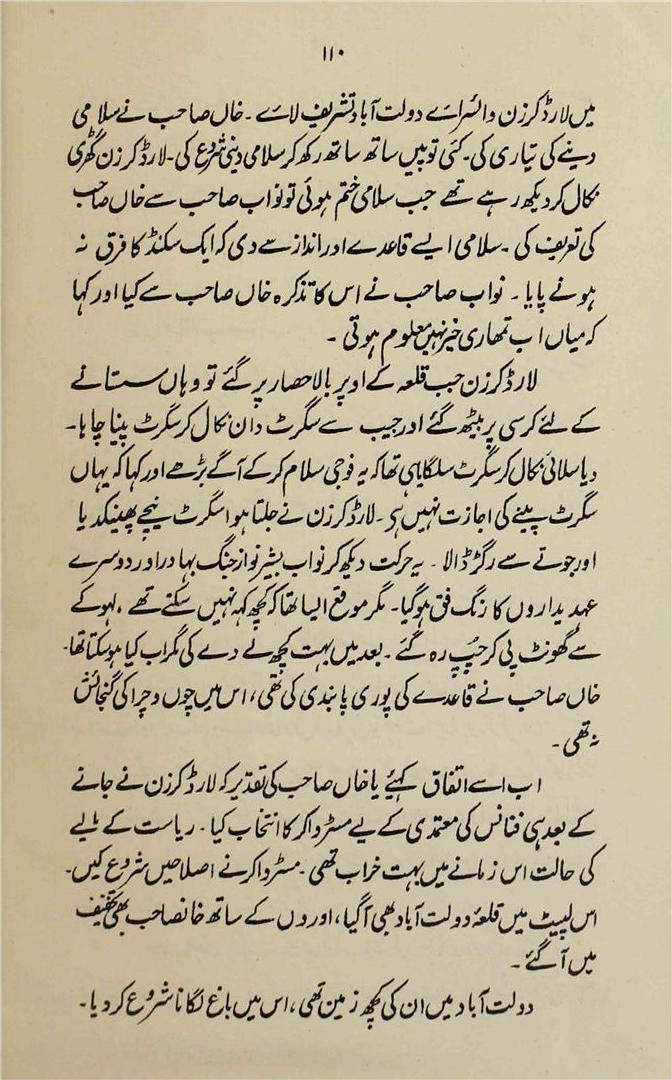 ۱۱۰
میں لارڈ کرزن وائسرائے دولت آباد تشریف لائے ۔ خاں صاحب نے سلامی
دینے کی تیاری کی۔ کئی توپیں ساتھ ساتھ رکھ کر سلامی دینی شروع کی۔ لارڈ کرزن گھڑی
نکال کر دیکھ رہے تھے جب سلامی ختم ہوئی تو نواب صاحب سے خاں صاحب
کی تعریف کی ۔ سلامی ایسے قاعدے اور انداز سے دی کہ ایک سکنڈ کا فرق نہ
ہونے پایا ۔ نواب صاحب نے اس کا تذکرہ خاں صاحب سے کیا اور کہا
کہ میاں اب تمھاری خیر نہیں معلوم ہوتی ۔
لارڈ کرزن جب قلعہ کے اوپر بالا حصار پر گئے تو وہاں سستانے
کے لئے کرسی پر بیٹھ گئے اور جیب سے سگرٹ دان نکال کر سگرٹ پینا چاہا۔
دیا سلائی نکال کر سگرٹ سلگایا ہی تھا کہ یہ فوجی سلام کر کے آگے بڑھے اور کہا کہ یہاں
سگرٹ پینے کی اجازت نہیں ہی ۔ لارڈ کرزن نے جلتا ہوا سگرٹ نیچے پھینک دیا
اور جوتے سے رگڑ ڈالا ۔ یہ حرکت دیکھ کر نواب بشیر نواز جنگ بہادر اور دوسرے
عہدیداروں کا رنگ فق ہو گیا۔ مگر موقع ایسا تھا کہ کچھ کہہ نہیں سکتے تھے ، لہو کے
سے گھونٹ پی کر چپ رہ گئے ۔ بعد میں بہت کچھ لے دے کی مگر اب کیا ہو سکتا تھا۔
خاں صاحب نے قاعدے کی پوری پابندی کی تھی ، اس میں چوں و چرا کی گنجائش
نہ تھی ۔
اب اسے اتفاق کہئیے یا خاں صاحب کی تقدیر کہ لارڈ کرزن نے جانے
کے بعد ہی فنانس کی معتمدی کے لیے مسٹر واکر کا انتخاب کیا ۔ ریاست کے مالیے
کی حالت اس زمانے میں بہت خراب تھی ۔ مسٹر واکر نے اصلاحیں شروع کیں۔
اس لپیٹ میں قلعۂ دولت آباد بھی آگیا ، اوروں کے ساتھ خانصاحب بھی تخفیف
میں آ گئے ۔
دولت آباد میں ان کی کچھ زمین تھی ، اس میں باغ لگانا شروع کر دیا ۔